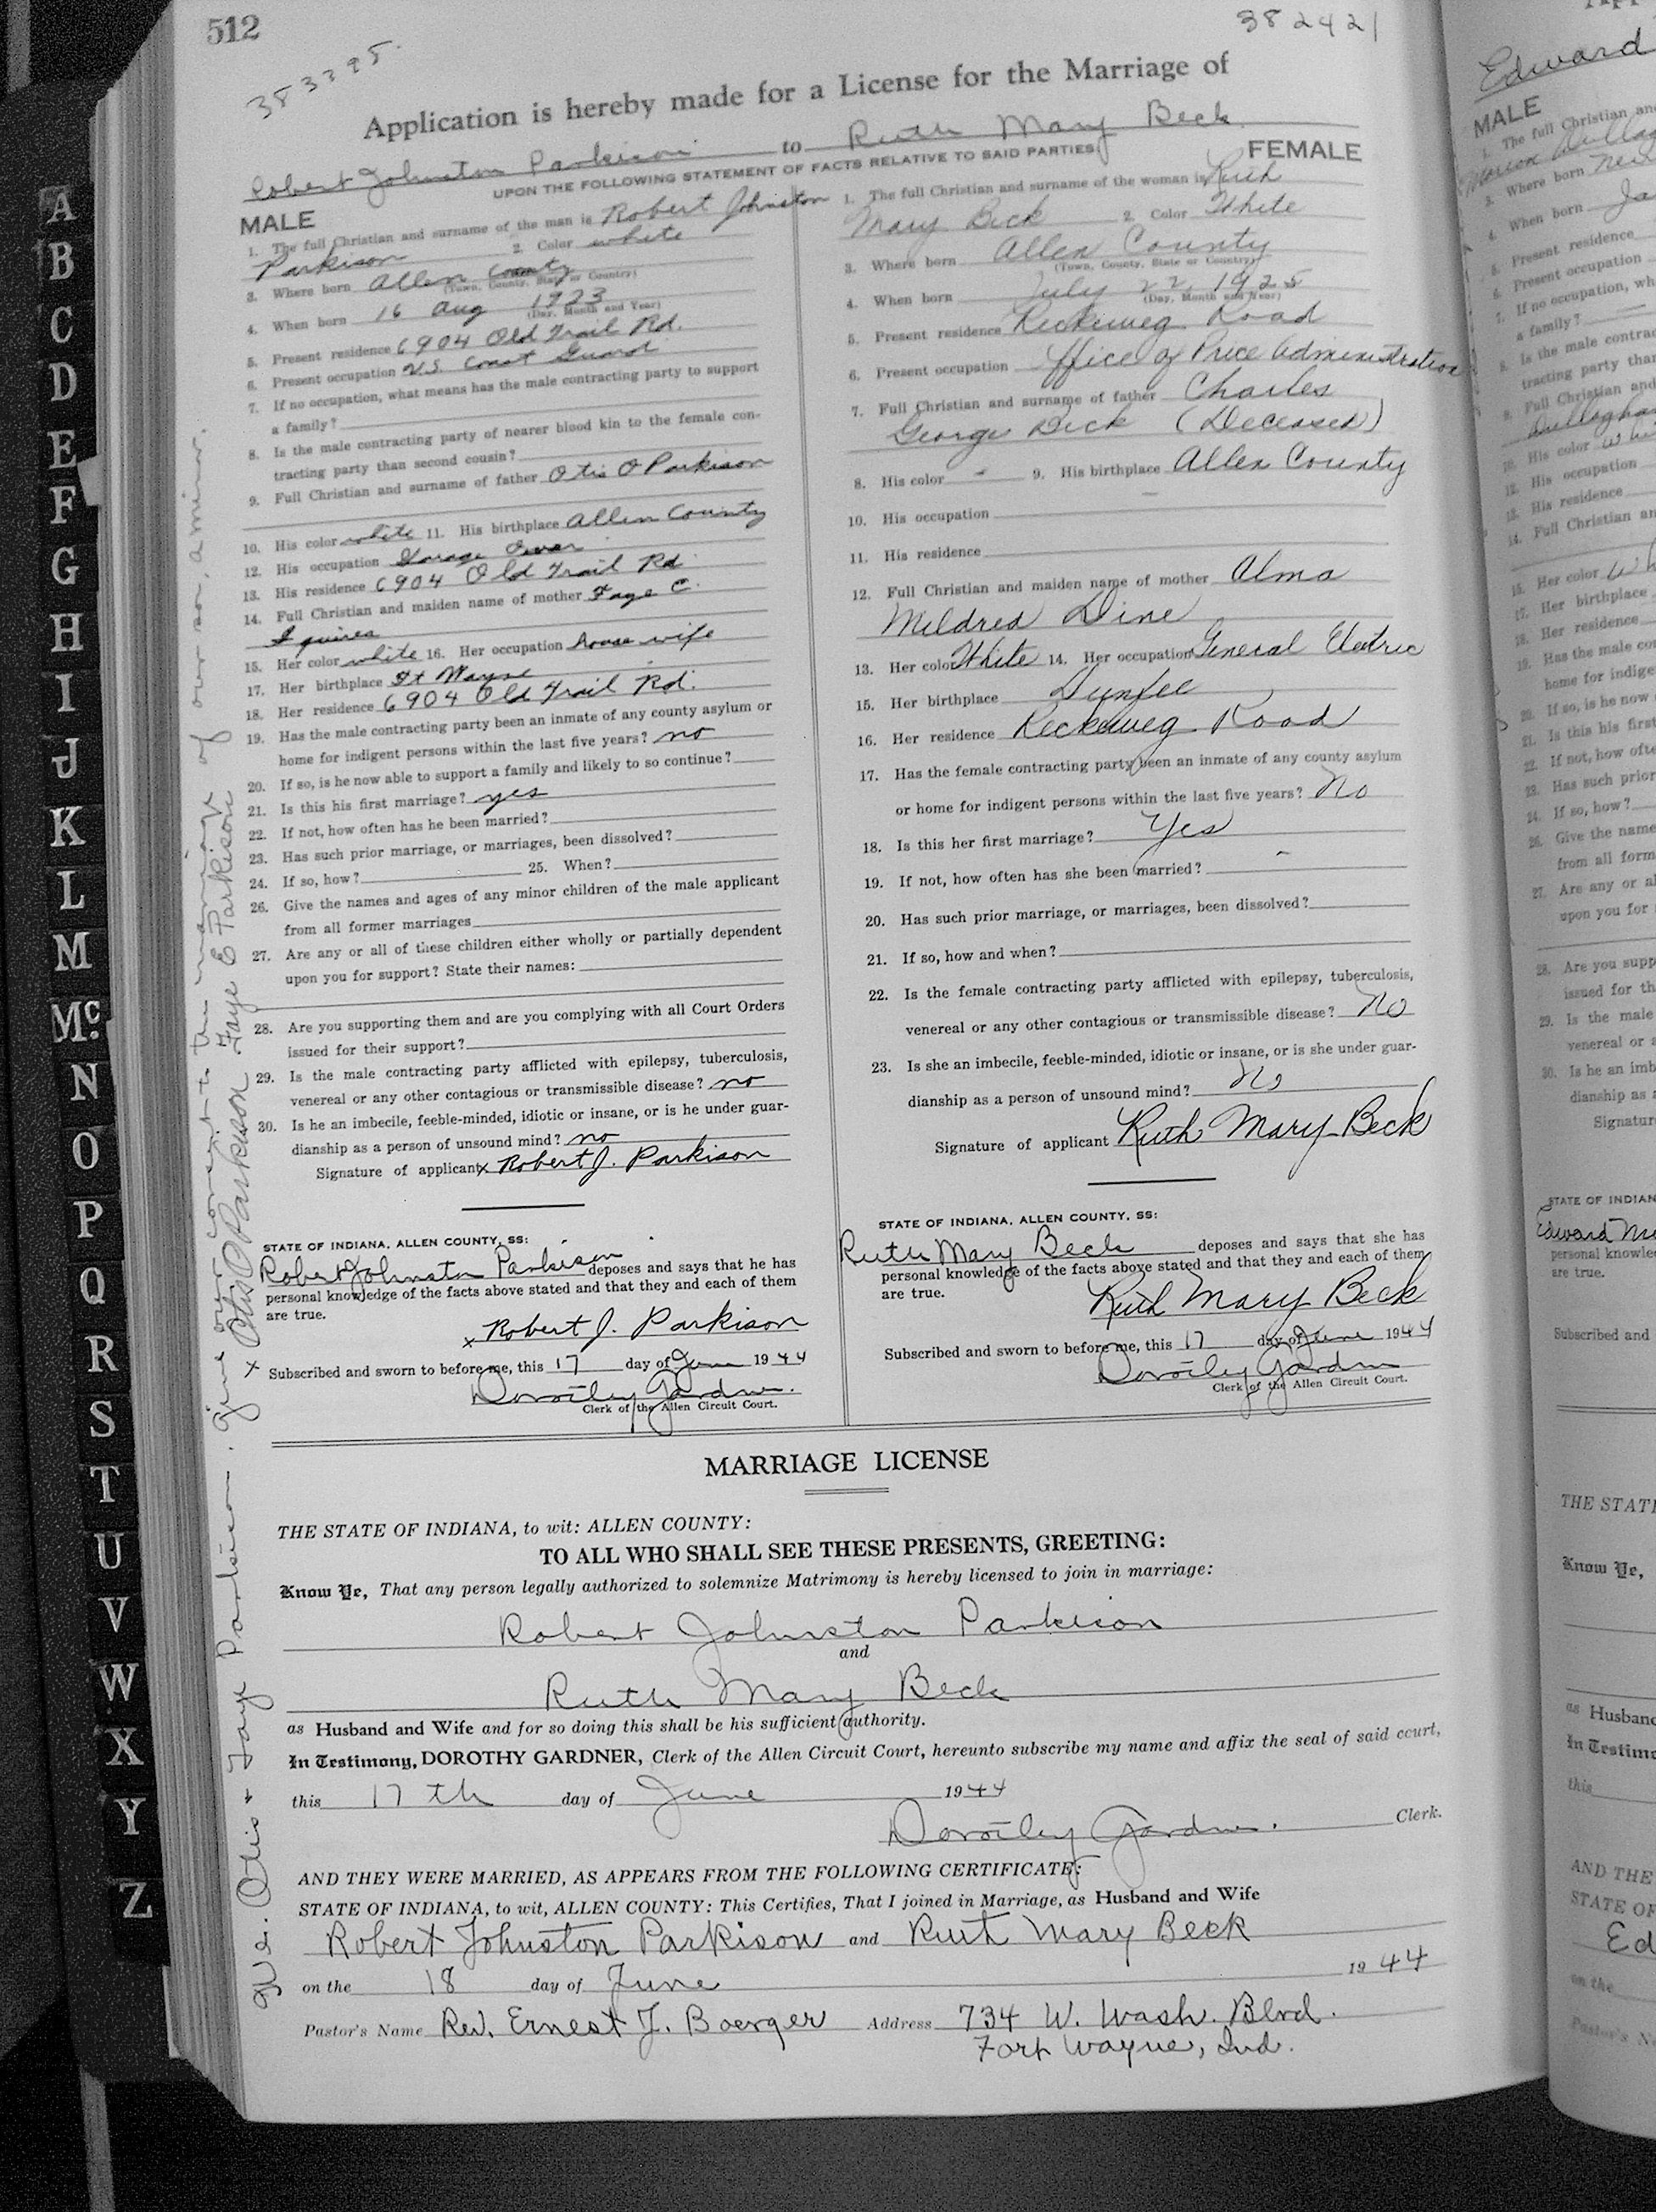 512
382421
383395
Application is hereby made for a License for the Marriage of
Robert Johnston Parkison to Ruth Mary Beck
UPON THE FOLLOWING STATEMENT OF FACTS RELATIVE TO SAID PARTIES
MALE
1. The full Christian and surname of the man is Robert Johnston
Parkison 2. Color white
3. Where born Allen County
(Town, County, State or Country)
4. When born 16 Aug 1923
(Day, Month and Year)
5. Present residence 6904 Old Trail Rd.
6. Present occupation U.S. Coast Guard
7. If no occupation, what means has the male contracting party to support
a family?
8. Is the male contracting party of nearer blood kin to the female con-
tracting party than second cousin?
9. Full Christian and surname of father Otis O Parkison
10. His color white 11. His birthplace Allen County
12. His occupation Garage Owner
13. His residence 6904 Old Trail Rd
14. Full Christian and maiden name of mother Faye C.
Squires
15. Her color white 16. Her occupation house wife
17. Her birthplace Ft Wayne
18. Her residence 6904 Old Trail Rd.
19. Has the male contracting party been an inmate of any county asylum or
home for indigent persons within the last five years? no
20. If so, is he now able to support a family and likely to so continue?
21. Is this his first marriage? yes
22. If not, how often has he been married?
23. Has such prior marriage, or marriages, been dissolved?
24. If so, how? 25. When?
26. Give the names and ages of any minor children of the male applicant
from all former marriages
27. Are any or all of these children either wholly or partially dependent
upon you for support? State their names:
28. Are you supporting them and are you complying with all Court Orders
issued for their support?
29. Is the male contracting party afflicted with epilepsy, tuberculosis,
venereal or any other contagious or transmissible disease? no
30. Is he an imbecile, feeble-minded, idiotic or insane, or is he under guar-
dianship as a person of unsound mind? no
Signature of applicant x Robert J. Parkison
STATE OF INDIANA, ALLEN COUNTY, SS:
Robert Johnston Parkison deposes and says that he has
personal knowledge of the facts above stated and that they and each of them
are true.
x Robert J. Parkison
Subscribed and sworn to before me, this 17 day of June 1944
Dorothy Gardner.
Clerk of the Allen Circuit Court.
FEMALE
1. The full Christian and surname of the woman is Ruth
Mary Beck 2. Color White
3. Where born Allen County
(Town, County, State or Country)
4. When born July 22, 1925
(Day, Month and Year)
5. Present residence Reckeweg Road
6. Present occupation Office of Price Administration
7. Full Christian and surname of father Charles
George Beck (Deceased)
8. His color - 9. His birthplace Allen County
10. His occupation —
11. His residence
12. Full Christian and maiden name of mother Alma
Mildred Dine
13. Her color White 14. Her occupation General Electric
15. Her birthplace Dunfee
16. Her residence Reckeweg Road
17. Has the female contracting party been an inmate of any county asylum
or home for indigent persons within the last five years? No
18. Is this her first marriage? Yes
19. If not, how often has she been married? -
20. Has such prior marriage, or marriages, been dissolved?
21. If so, how and when?
22. Is the female contracting party afflicted with epilepsy, tuberculosis,
venereal or any other contagious or transmissible disease? No
23. Is she an imbecile, feeble-minded, idiotic or insane, or is she under guar-
dianship as a person of unsound mind? No
Signature of applicant Ruth Mary Beck
STATE OF INDIANA, ALLEN COUNTY, SS:
Ruth Mary Beck deposes and says that she has
personal knowledge of the facts above stated and that they and each of them
are true.
Ruth Mary Beck
Subscribed and sworn to before me, this 17 day of June 1944
Dorothy Gardner
Clerk of the Allen Circuit Court.
We. Otis & Faye Parkison. give our consent to the marriage of our son, a minor.
x Otis O Parkison Faye C Parkison
MARRIAGE LICENSE
THE STATE OF INDIANA, to wit: ALLEN COUNTY:
TO ALL WHO SHALL SEE THESE PRESENTS, GREETING:
Know Ye, That any person legally authorized to solemnize Matrimony is hereby licensed to join in marriage:
Robert Johnston Parkison
and
Ruth Mary Beck
as Husband and Wife and for so doing this shall be his sufficient authority.
In Testimony, DOROTHY GARDNER, Clerk of the Allen Circuit Court, hereunto subscribe my name and affix the seal of said court,
this 17th day of June 1944
Dorothy Gardner. Clerk.
AND THEY WERE MARRIED, AS APPEARS FROM THE FOLLOWING CERTIFICATE:
STATE OF INDIANA, to wit, ALLEN COUNTY: This Certifies, That I joined in Marriage, as Husband and Wife
Robert Johnston Parkison and Ruth Mary Beck
on the 18 day of June 1944
Pastor's Name Rev. Ernest J. Boerger Address 734 W. Wash. Blvd.
Fort Wayne, Ind.
A
B
C
D
E
F
G
H
I
J
K
L
M
Mc
N
O
P
Q
R
S
T
U
V
W
X
Y
Z
Edward
MALE
1. The full Christian an
3. Where born
4. When born Ja
5. Present residence
6. Present occupation
7. If no occupation, wh
a family?
8. Is the male contrac
tracting party than
9. Full Christian and
10. His color whi
12. His occupation
13. His residence
14. Full Christian an
15. Her color
17. Her birthplace
18. Her residence
19. Has the male co
home for indige
20. If so, is he now
21. Is this his first
22. If not, how ofte
23. Has such prior
24. If so, how?
26. Give the name
from all form
27. Are any or al
upon you for
28. Are you supp
issued for th
29. Is the male
venereal or a
30. Is he an imb
dianship as a
Signatur
STATE OF INDIAN
Edward
personal knowle
are true.
Subscribed and
THE STAT
Know Ye,
as Husband
In Testimo
this
AND THE
STATE OF
Ed
on the
Pastor's N